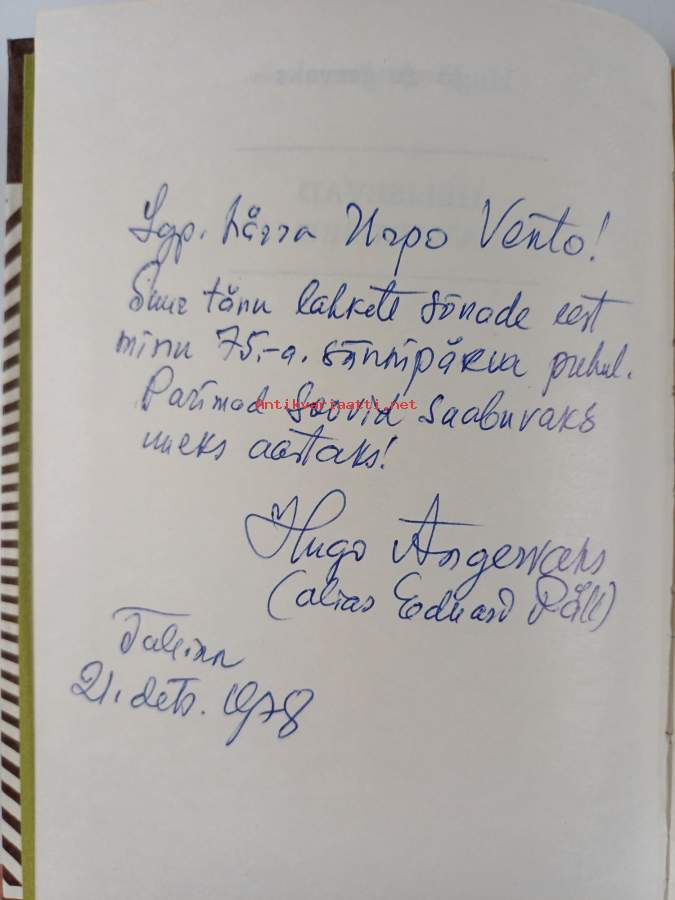 Lgp. härra Urpo Vento!
Suur tänu lahkete sõnade eest
minu 75.-a. sünnipäeva puhul.
Parimad soovid saabuvaks
uueks aastaks!
Antikvariaatti.net
Hugo Angervaks
(alias Eduard Päll)
Tallinn
21. dets. 1978